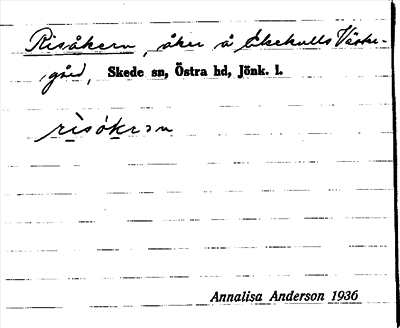 Risåkern, åker å Ekekulls Väster-
gård, Skede sn, Östra hd, Jönk. l.
rìsókrɔn
Annalisa Anderson 1936